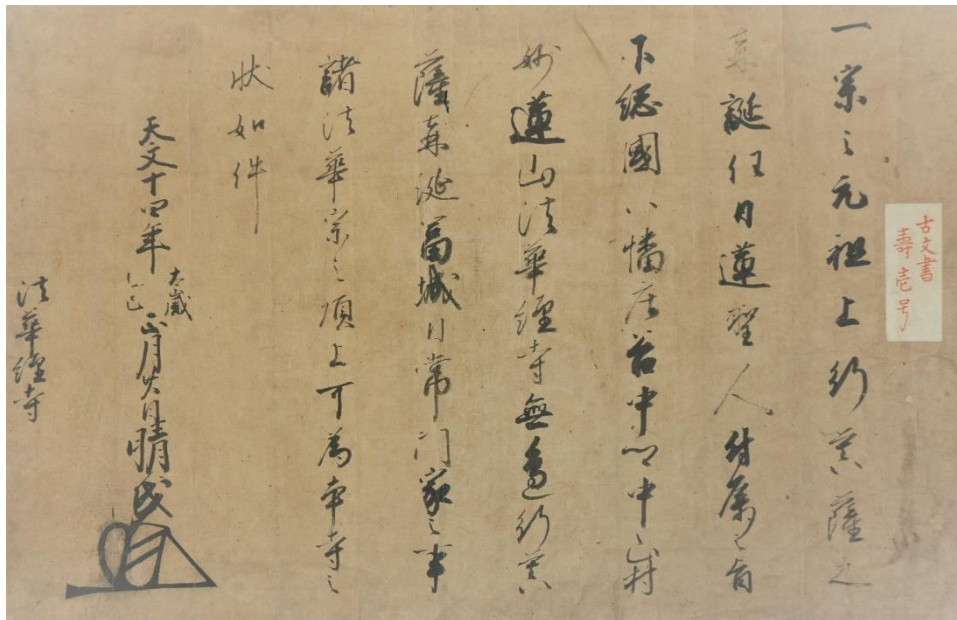 古文書
壽壱号
一宗之元祖上行菩薩之
垂誕任日蓮聖人付属之旨
下総國八幡庄谷中郷中山村
妙蓮山法華経寺無邉行菩
薩垂誕冨城日常門家之事
諸法華宗之頂上可為本寺之
状如件
天文十四年太歳乙巳正月廿日晴氏
法華経寺